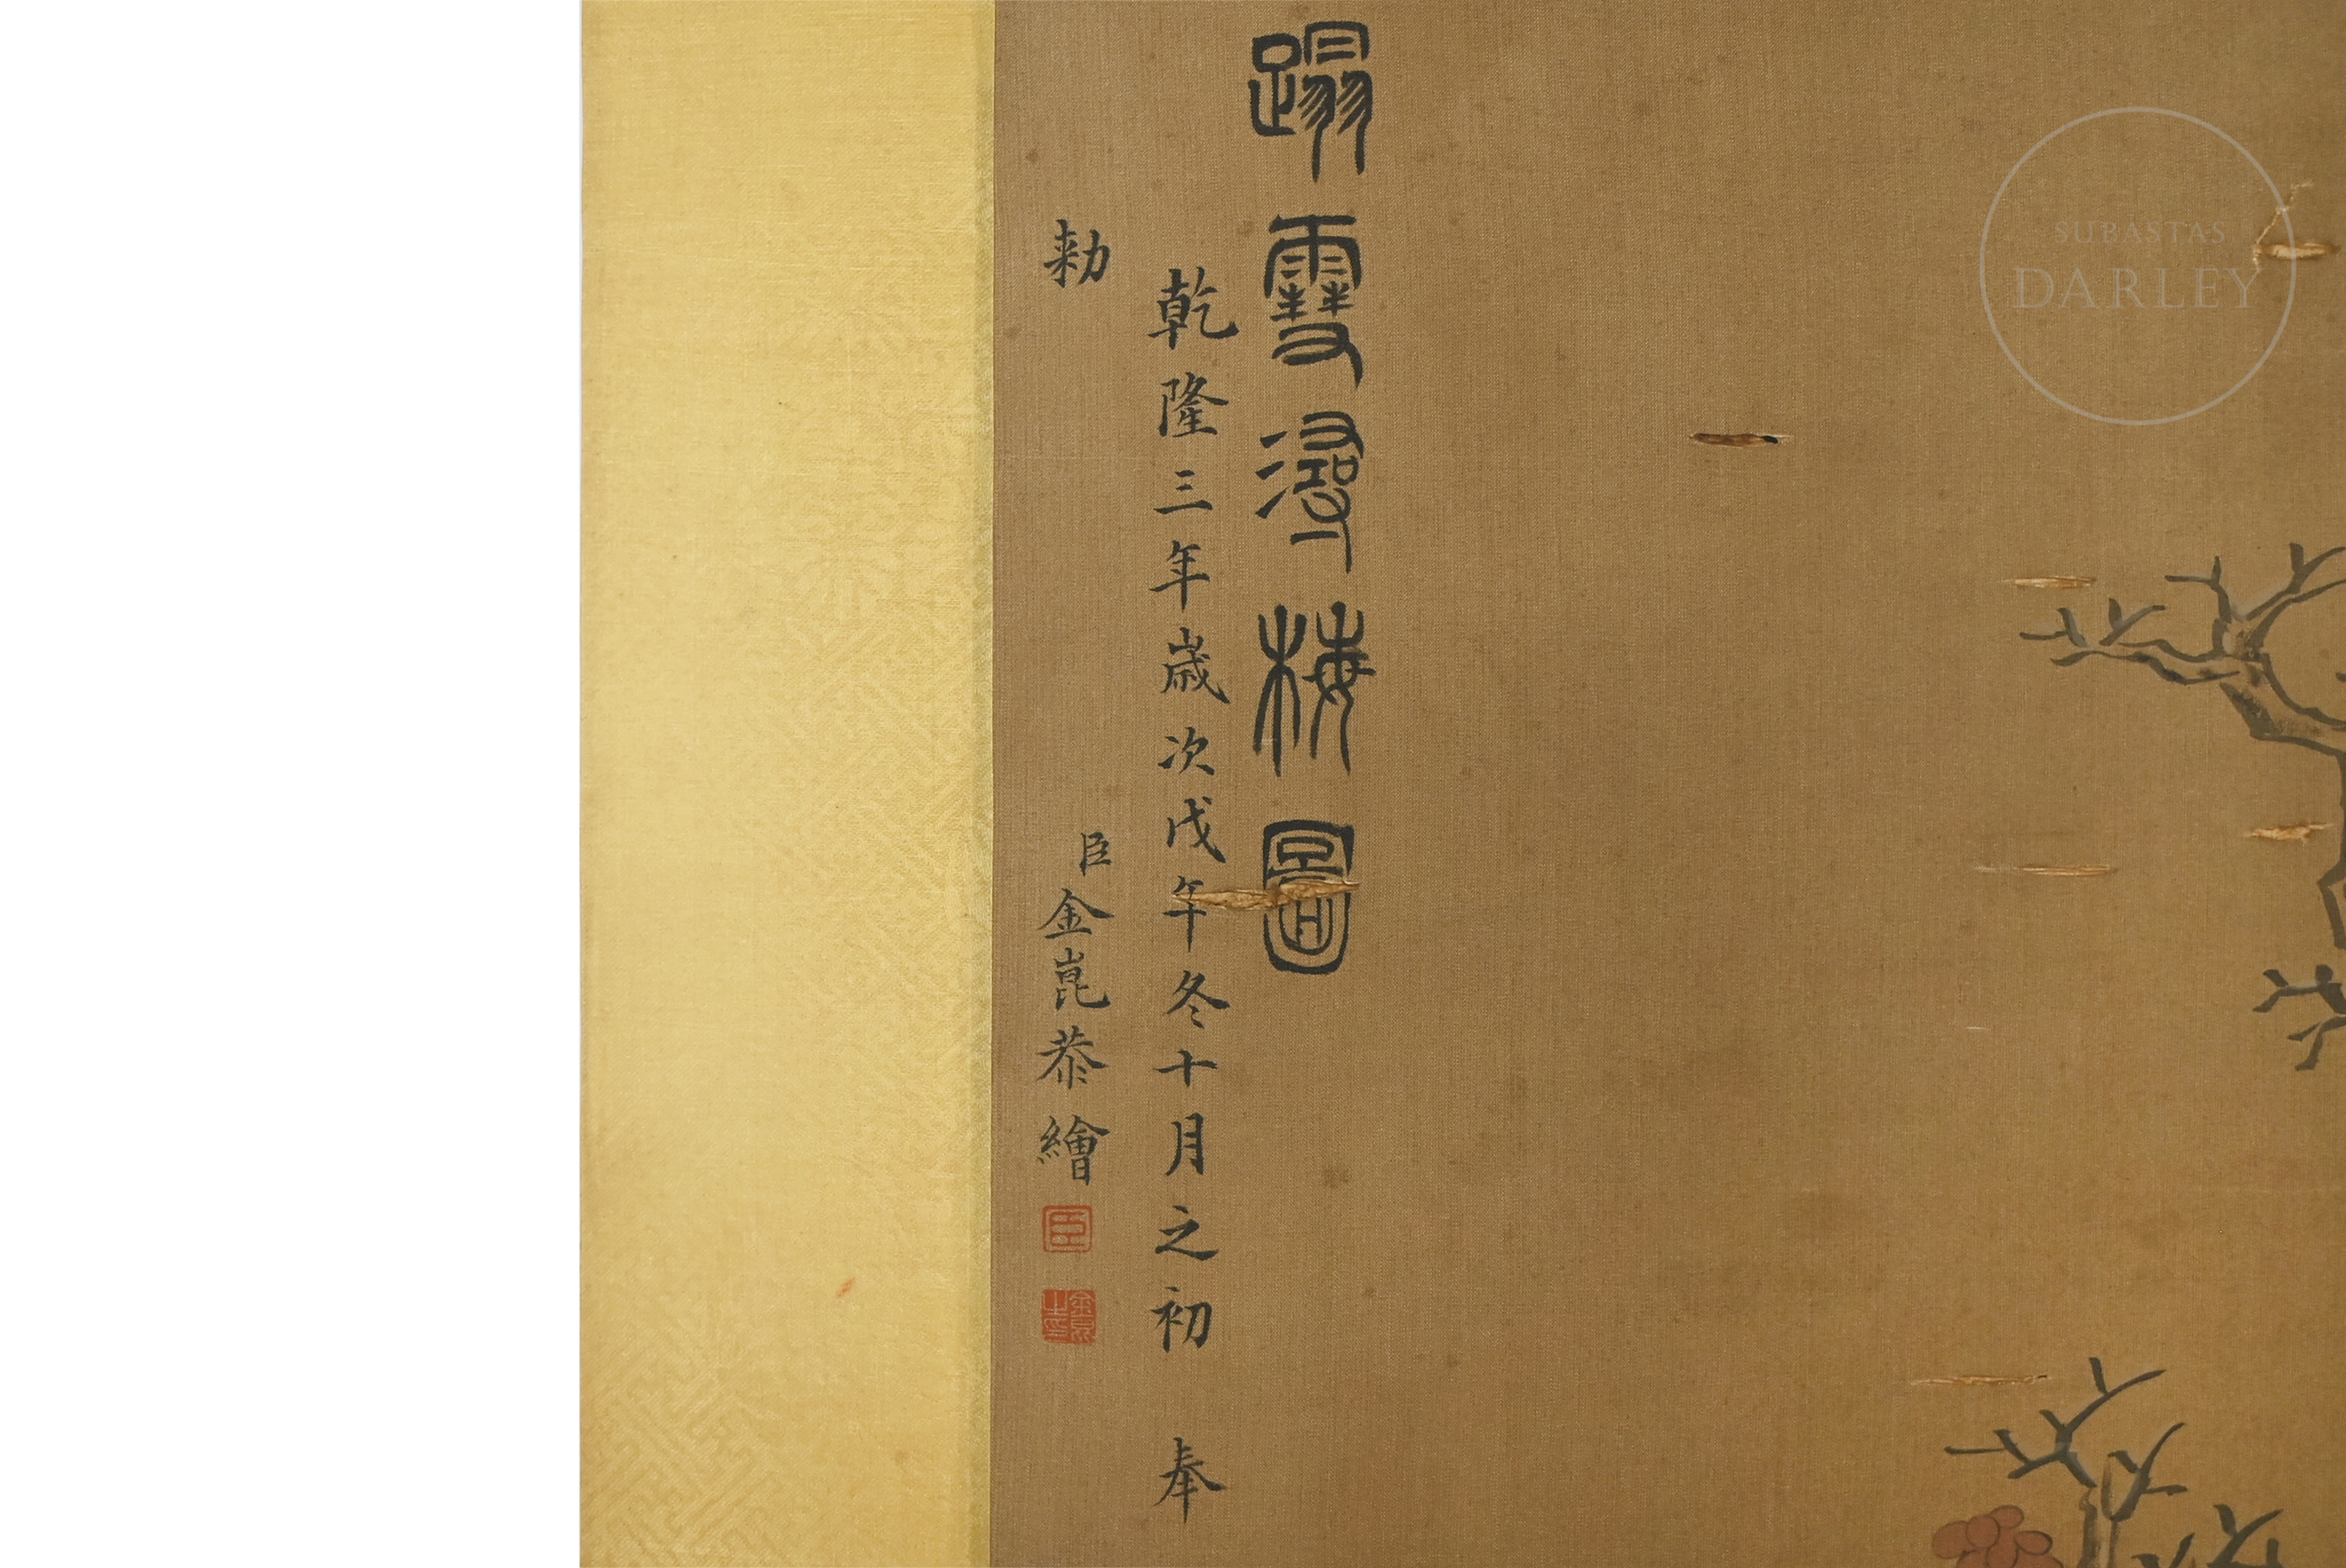 蹋雪尋梅圖
乾隆三年歲次戊午冬十月之初 奉
勅 臣金崑恭繪
臣
SUBASTAS
DARLEY